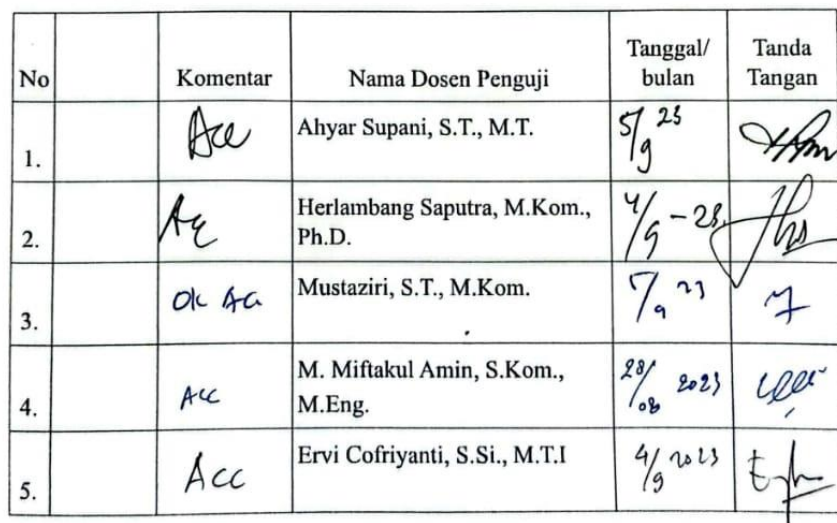 No Komentar Nama Dosen Penguji Tanggal/ bulan Tanda Tangan
1. Acc Ahyar Supani, S.T., M.T. 5/9 23
2. Acc Herlambang Saputra, M.Kom., Ph.D. 4/9 - 23
3. Ok Acc Mustaziri, S.T., M.Kom. 5/9 23
4. Acc M. Miftakul Amin, S.Kom., M.Eng. 28/08 2023
5. Acc Ervi Cofriyanti, S.Si., M.T.I 4/9 2023